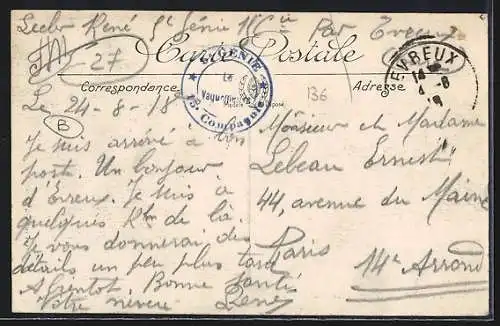 René 1er Génie Par Evreux
Carte Postale
27
Correspondance
Adresse
Le 24-8-18
136
1er GÉNIE
Le
15e Compagnie
EVREUX
B
Je suis arrivé à mon
poste. Un bonjour
d'Evreux. Je suis à
quelques Km de là.
Je vous donnerai des
détails un peu plus tard
A bientot. Bonne santé
Votre neveu René
Monsieur et Madame
Lebeau Ernest
44, avenue du Maine
Paris
14e Arrond